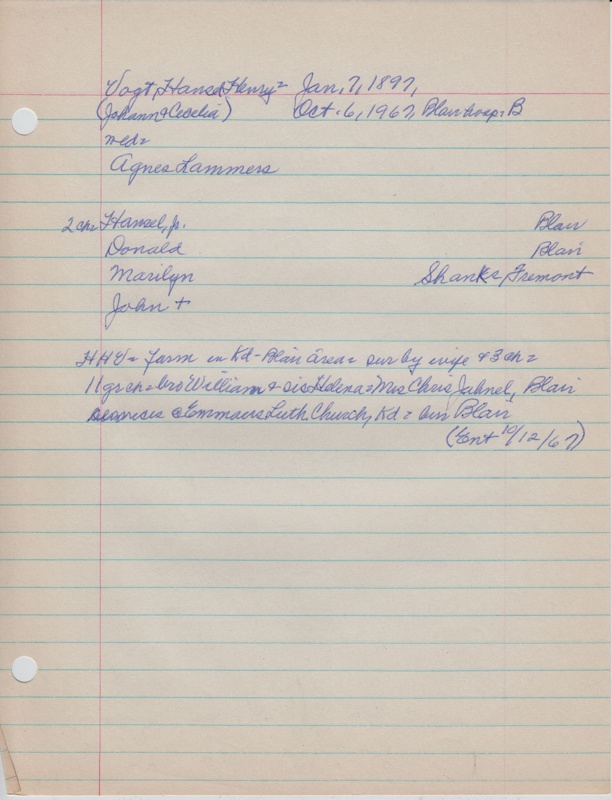 Vogt, Hansel Henry = Jan. 7, 1897,
(Johann & Cecelia) Oct. 6, 1967, Blair hosp. B
md =
Agnes Lammers
2 ch = Hansel, jr. Blair
Donald Blair
Marilyn Shanks, Fremont
John +
HHV = farm in Kd - Blair area = sur by wife & 3 ch =
11 gr ch = bro William & sis Helena = Mrs Chris Jahnel, Blair
services @ Emmaus Luth Church, Kd = bur Blair
(Ent 10/12/67)